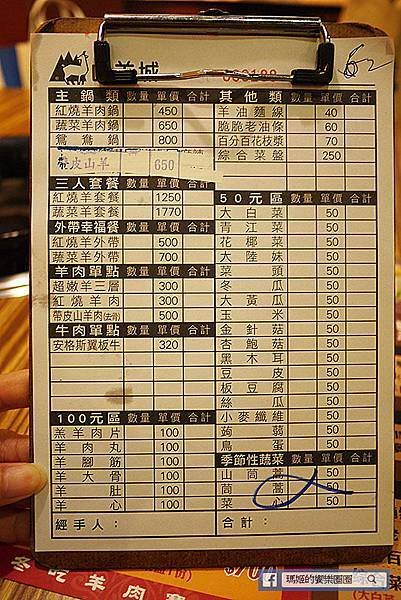 羊城
主鍋類 數量 單價 合計
紅燒羊肉鍋 450
蔬菜羊肉鍋 650
鴛鴦鍋 800
皮山羊 650
三人套餐 數量 單價 合計
紅燒羊套餐 1250
蔬菜羊套餐 1770
外帶幸福餐 數量 單價 合計
紅燒羊外帶 500
蔬菜羊外帶 700
羊肉單點 數量 單價 合計
超嫩羊三層 300
紅燒羊肉 300
帶皮山羊肉(去骨) 500
牛肉單點 數量 單價 合計
安格斯翼板牛 320
100元區 數量 單價 合計
羔羊肉片 100
羊肉丸 100
羊腳筋 100
羊大骨 100
羊肚 100
羊心 100
經手人：
其他類 數量 單價 合計
羊油麵線 40
脆脆老油條 60
百分百花枝漿 70
綜合菜盤 250
50元區 數量 單價 合計
大白菜 50
青江菜 50
花椰菜 50
大陸妹 50
菜頭 50
冬瓜 50
大黃瓜 50
玉米 50
金針菇 50
杏鮑菇 50
黑木耳 50
豆皮 50
板豆腐 50
絲瓜 50
小麥纖維 50
蒟蒻 50
鳥蛋 50
季節性蔬菜 數量 單價 合計
山茼蒿 50
茼蒿 50
菜心 50
合計：
冬吃羊肉
瑪姬的寶樂圈圈